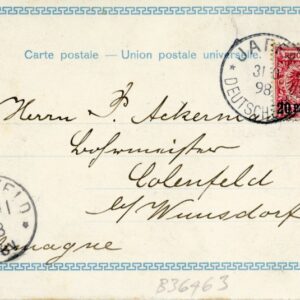 Carte postale — Union postale universelle.
JAF
31
98
DEUTSCHE
20 P
Herrn P. Ackerm
Bohrmeister
Colenfeld
b/ Wunsdorf
magne
FELD
836463